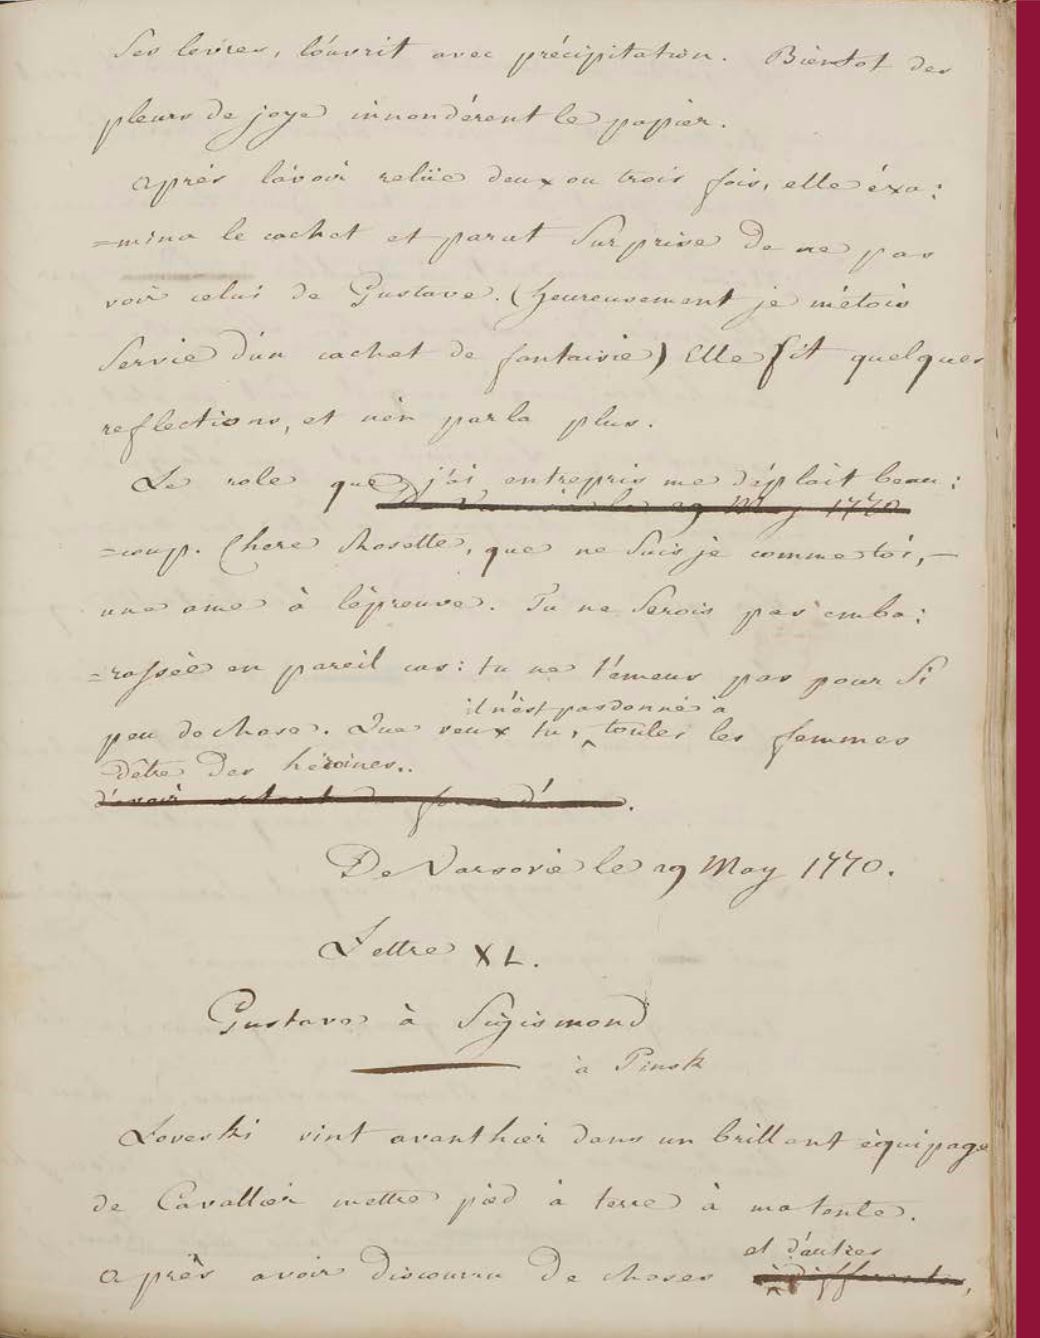 Ses levres, l'ouvrit avec précipitation. Bientot des
pleurs de joye innondérent le papier.
Aprés l'avoir reliie deux ou trois fois, elle éxa:
=mina le cachet et parut Surprise de ne pas
voir celui de Gustave. (heureusement je m'étois
Servie d'un cachet de fantaisie) Elle fit quelques
reflections, et n'en parla plus.
Le role que j'ai entrepris me déplait beau:
De Varsovie le 19 May 1770
=coup. Chere Rosette, que ne suis je comme toi, —
une ame à l'épreuve. Tu ne Serois pas emba:
=rassée en pareil cas: tu ne t'émeus pas pour Si
il n'est pas donné à
peu de chose. Que veux tu, toutes les femmes
d'être des héroines..
d'avoir autant de force d'ame.
De Varsovie le 19 May 1770.
Lettre XL.
Gustave à Sigismond
à Pinsk
Loveski vint avanthier dans un brillant équipage
de Cavallier mettre pied à terre à ma tente.
et d'autres
Après avoir discouru de choses indifferentes,